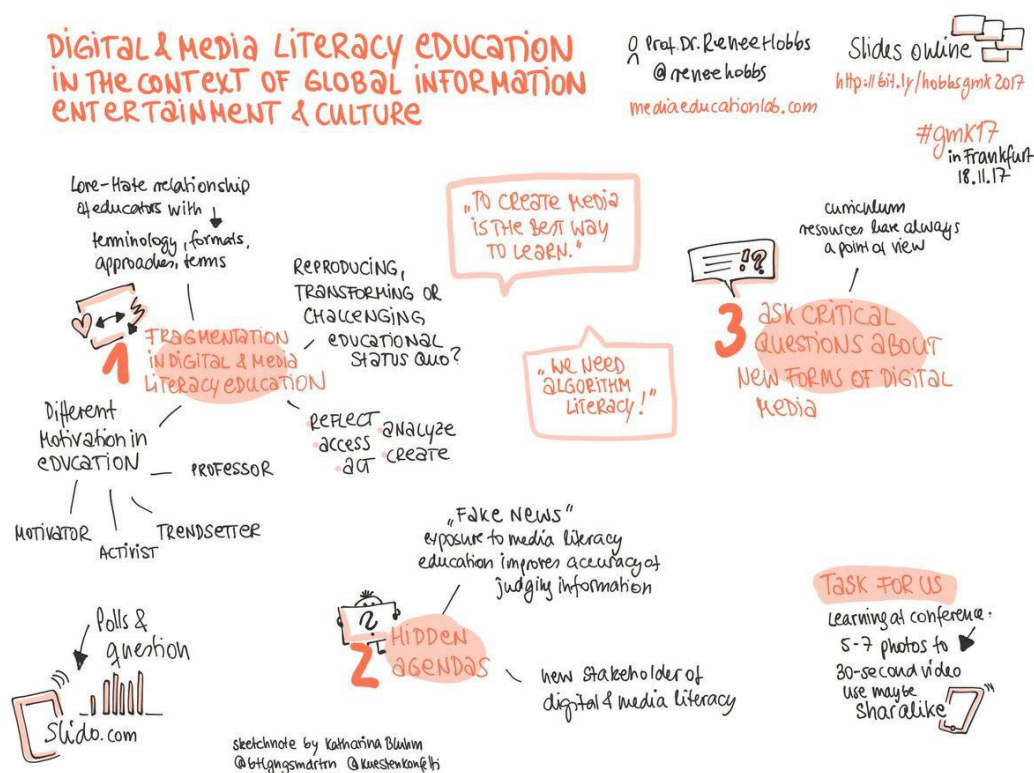 DIGITAL & MEDIA LITERACY EDUCATION
IN THE CONTEXT OF GLOBAL INFORMATION
ENTERTAINMENT & CULTURE
Prof. Dr. Renee Hobbs
@reneehobbs
mediaeducationlab.com
Slides online
http://bit.ly/hobbsgmk2017
#gmk17
in Frankfurt
18.11.17
Love-Hate relationship
of educators with
terminology, formats,
approaches, terms
1 FRAGMENTATION
IN DIGITAL & MEDIA
LITERACY EDUCATION
REPRODUCING,
TRANSFORMING OR
CHALLENGING
EDUCATIONAL
STATUS QUO?
REFLECT
ACCESS
ACT
ANALYZE
CREATE
Different
Motivation in
EDUCATION
PROFESSOR
TRENDSETTER
ACTIVIST
MOTIVATOR
„TO CREATE MEDIA
IS THE BEST WAY
TO LEARN."
„WE NEED
ALGORITHM
LITERACY!"
curriculum
resources have always
a point of view
!?
3 ASK CRITICAL
QUESTIONS ABOUT
NEW FORMS OF DIGITAL
MEDIA
„FAKE NEWS"
exposure to media literacy
education improves accuracy of
judging information
?
2 HIDDEN
AGENDAS
new stakeholder of
digital & media literacy
Polls &
question
Slido.com
TASK FOR US
Learning at conference:
5-7 photos to
30-second video
use maybe
Sharalike
sketchnote by Katharina Bluhm
@kuestenkonfetti